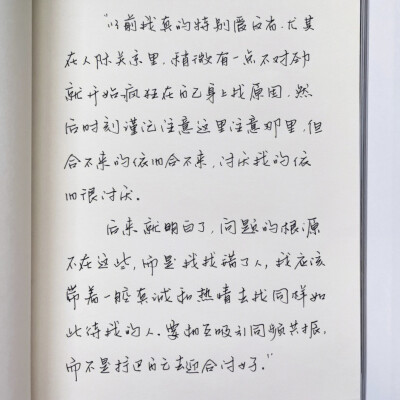 “以前我真的特别爱反省.尤其
在人际关系里.稍微有一点不对劲
就开始疯狂在自己身上找原因.然
后时刻谨记注意这里注意那里.但
合不来的依旧合不来.讨厌我的依
旧很讨厌.
后来就明白了,问题的根源
不在这些,而是我找错了人,我应该
带着一腔真诚和热情去找同样如
此待我的人.要相互吸引同频共振,
而不是打迫自己去迎合讨好.”